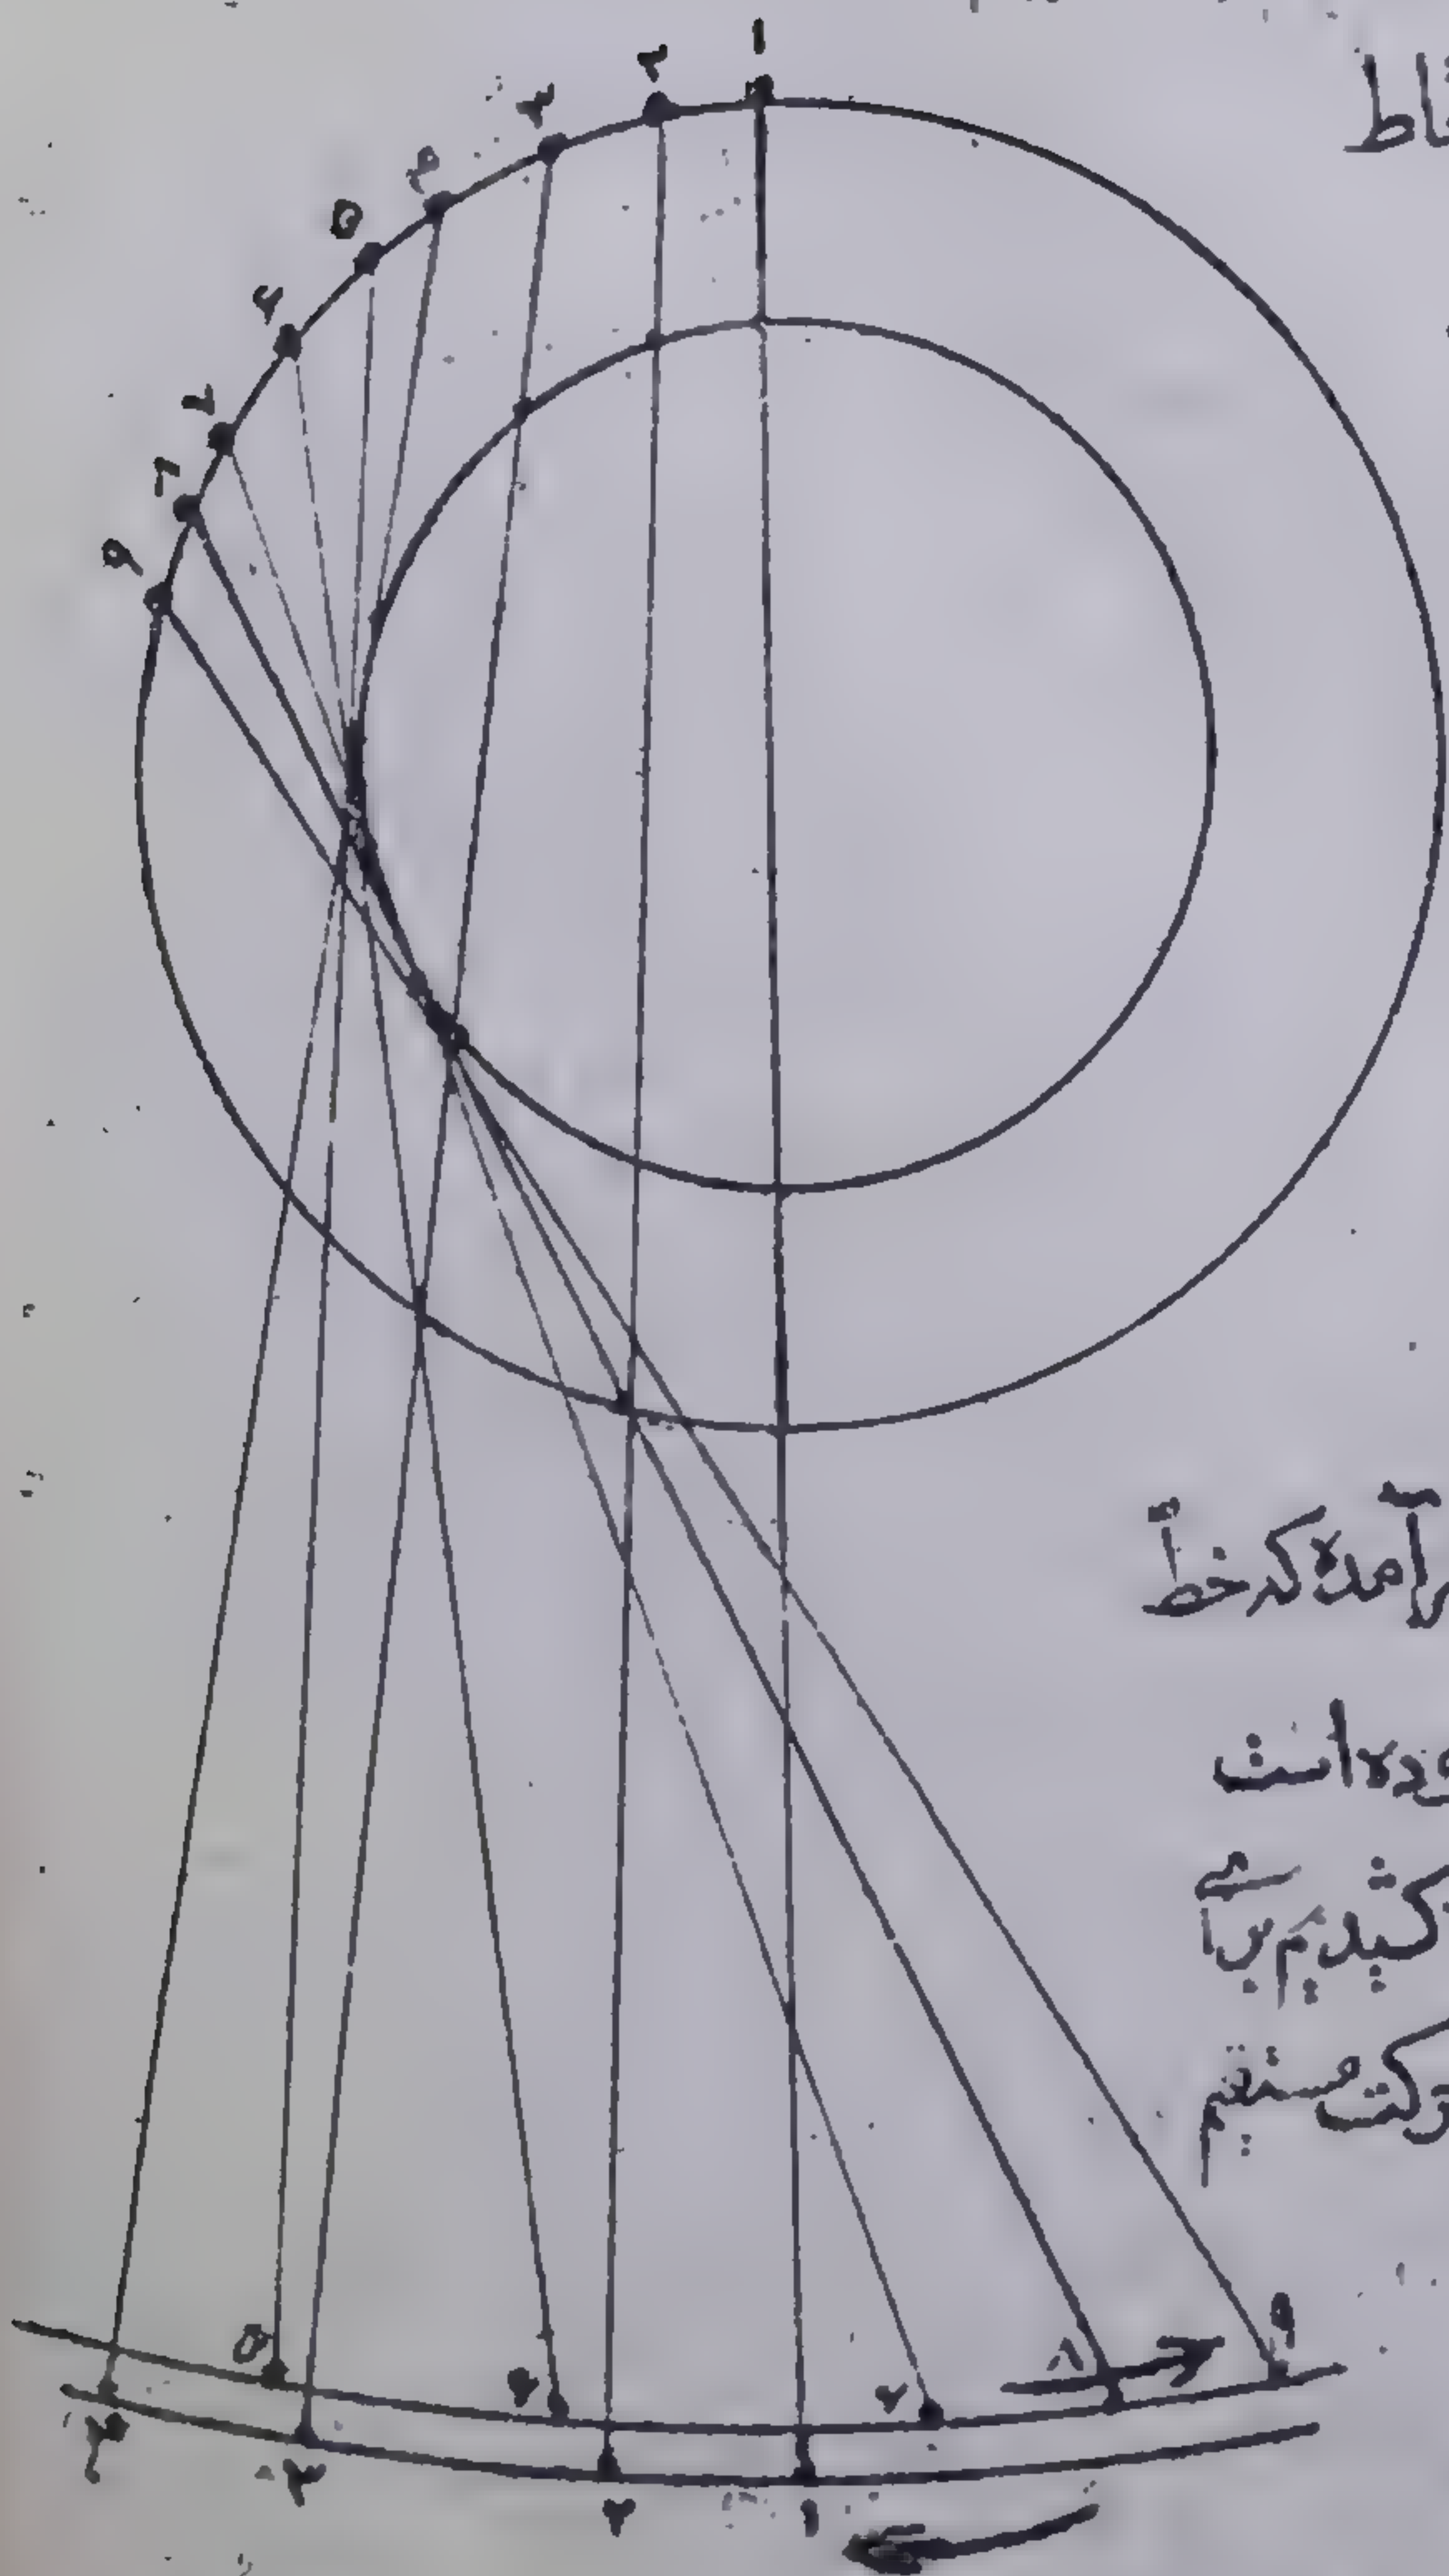 ۱
۲
۳
۴
۵
۶
۷
۹
آمده که خط
است
کشیدیم برای
حرکت مستقیم
۵
۶
۷
۸
۹
۴
۳
۲
۱